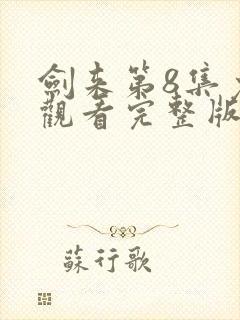 劍来第8集
觀看完整版
蘇行歌